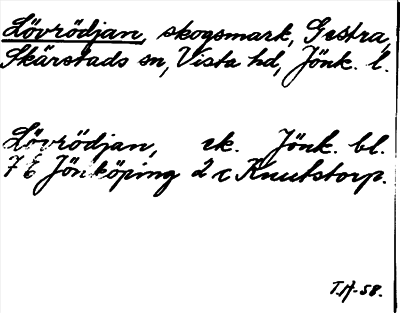 Lövrödjan, skogsmark, Gestra,
Skärstads sn, Vista hd, Jönk. l.
Lövrödjan, ek. Jönk. bl.
7 E Jönköping 2 c Knutstorp.
T.H-58.